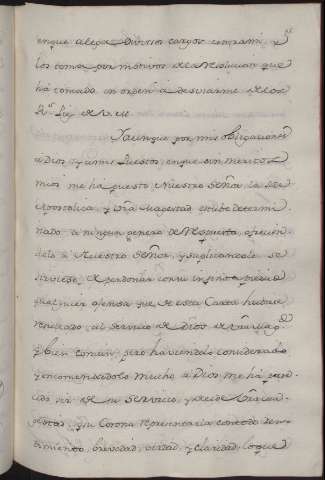 enque alega Diversos cargos contra mi, y
los toma por motivos de la resolucion que
há tomado en orden a desviarme de los
Rs. pies de V. M.
Yaunque por mis obligaciones
a Dios y a mis Puestos, enque sin meritos
mios me ha puesto Nuestro Señor, la Sede
Apostolica, y Vra Magestad estube determi
nado a ningun genero de Respuesta, ofrecien
dolo a Nuestro Señor, y suplicandole se
sirviesse de perdonar con su infinita piedad
qualquier ofensa que de esta Carta hubiesse
resultado, al servicio de Dios, de Vra Magd.
y bien comun; pero haviendolo considerado
y encomendadolo mucho a Dios me há pare
cido ser de su servicio, y de el de Vra Mag
estad, y su Corona representarla con todo ren
dimiento, brevedad, verdad, y claridad, lo que